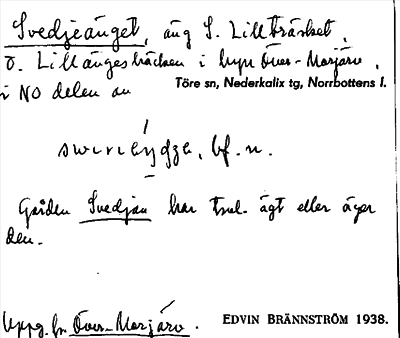 Svedjeänget, äng S. Lillträsket,
O. Lillängesbäcken i byn Över-Morjärv,
i NO delen av
Töre sn, Nederkalix tg, Norrbottens l.
bf. n.
Gården Svedjan har trol. ägt eller äger
den.
Uppg. fr. Över-Morjärv.
EDVIN BRÄNNSTRÖM 1938.